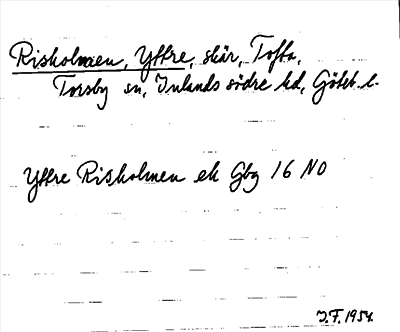 Risholmen, Yttre, skär, Tofta,
Torsby sn, Inlands södre hd, Göteb. l.
Yttre Risholmen ek Gbg 16 NO
J.F. 1954